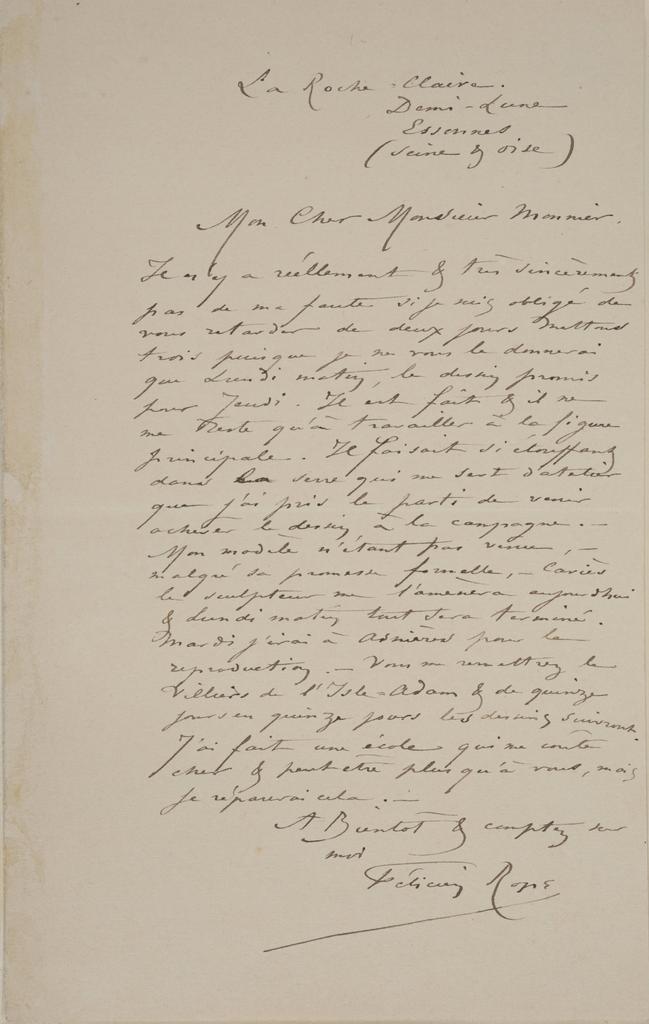 La Roche-Claire.
Demi-Lune
Essonnes
(Seine & Oise)
Mon Cher Monsieur Monnier.
Il n'y a réellement & très sincèrement
pas de ma faute si je suis obligé de
vous retarder de deux jours mettons
trois puisque je ne vous le donnerai
que Lundi matin, le dessin promis
pour Jeudi. Il est fait & il ne
me reste qu'à travailler à la figure
principale. Il faisait si étouffant
dans la serre qui me sert d'atelier
que j'ai pris le parti de venir
achever le dessin à la campagne. —
Mon modèle n'étant pas venue, —
malgré sa promesse formelle, — Cariès
le sculpteur me l'amènera aujourdhui
& Lundi matin tout sera terminé.
Mardi j'irai à Asnières pour la
reproduction. — Vous me remettrez le
Villiers de l'Isle-Adam & de quinze
jours en quinze jours les dessins suivront.
J'ai fait une école qui me coûte
cher & peut être plus qu'à vous, mais
je réparerai cela. —
A Bientôt & comptez sur
moi
Félicien Rops